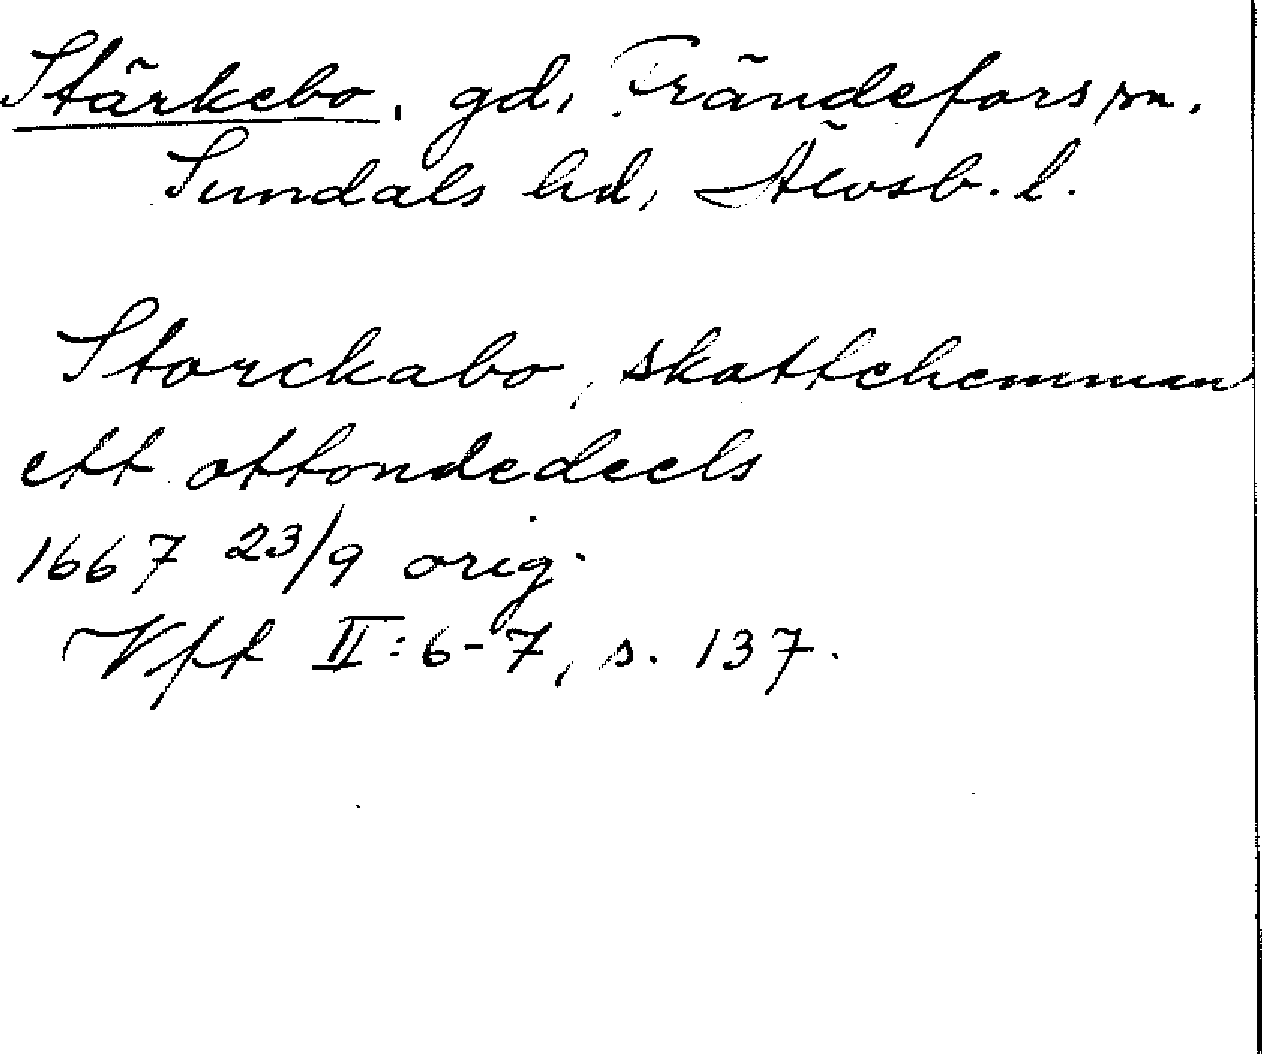 Stärkebo, gd, Frändefors sn.
Sundals hd, Älvsb. l.
Storckabo, skattehemman
ett ottondedeels
1667 23/9 orig.
Vfft II: 6-7, s. 137.